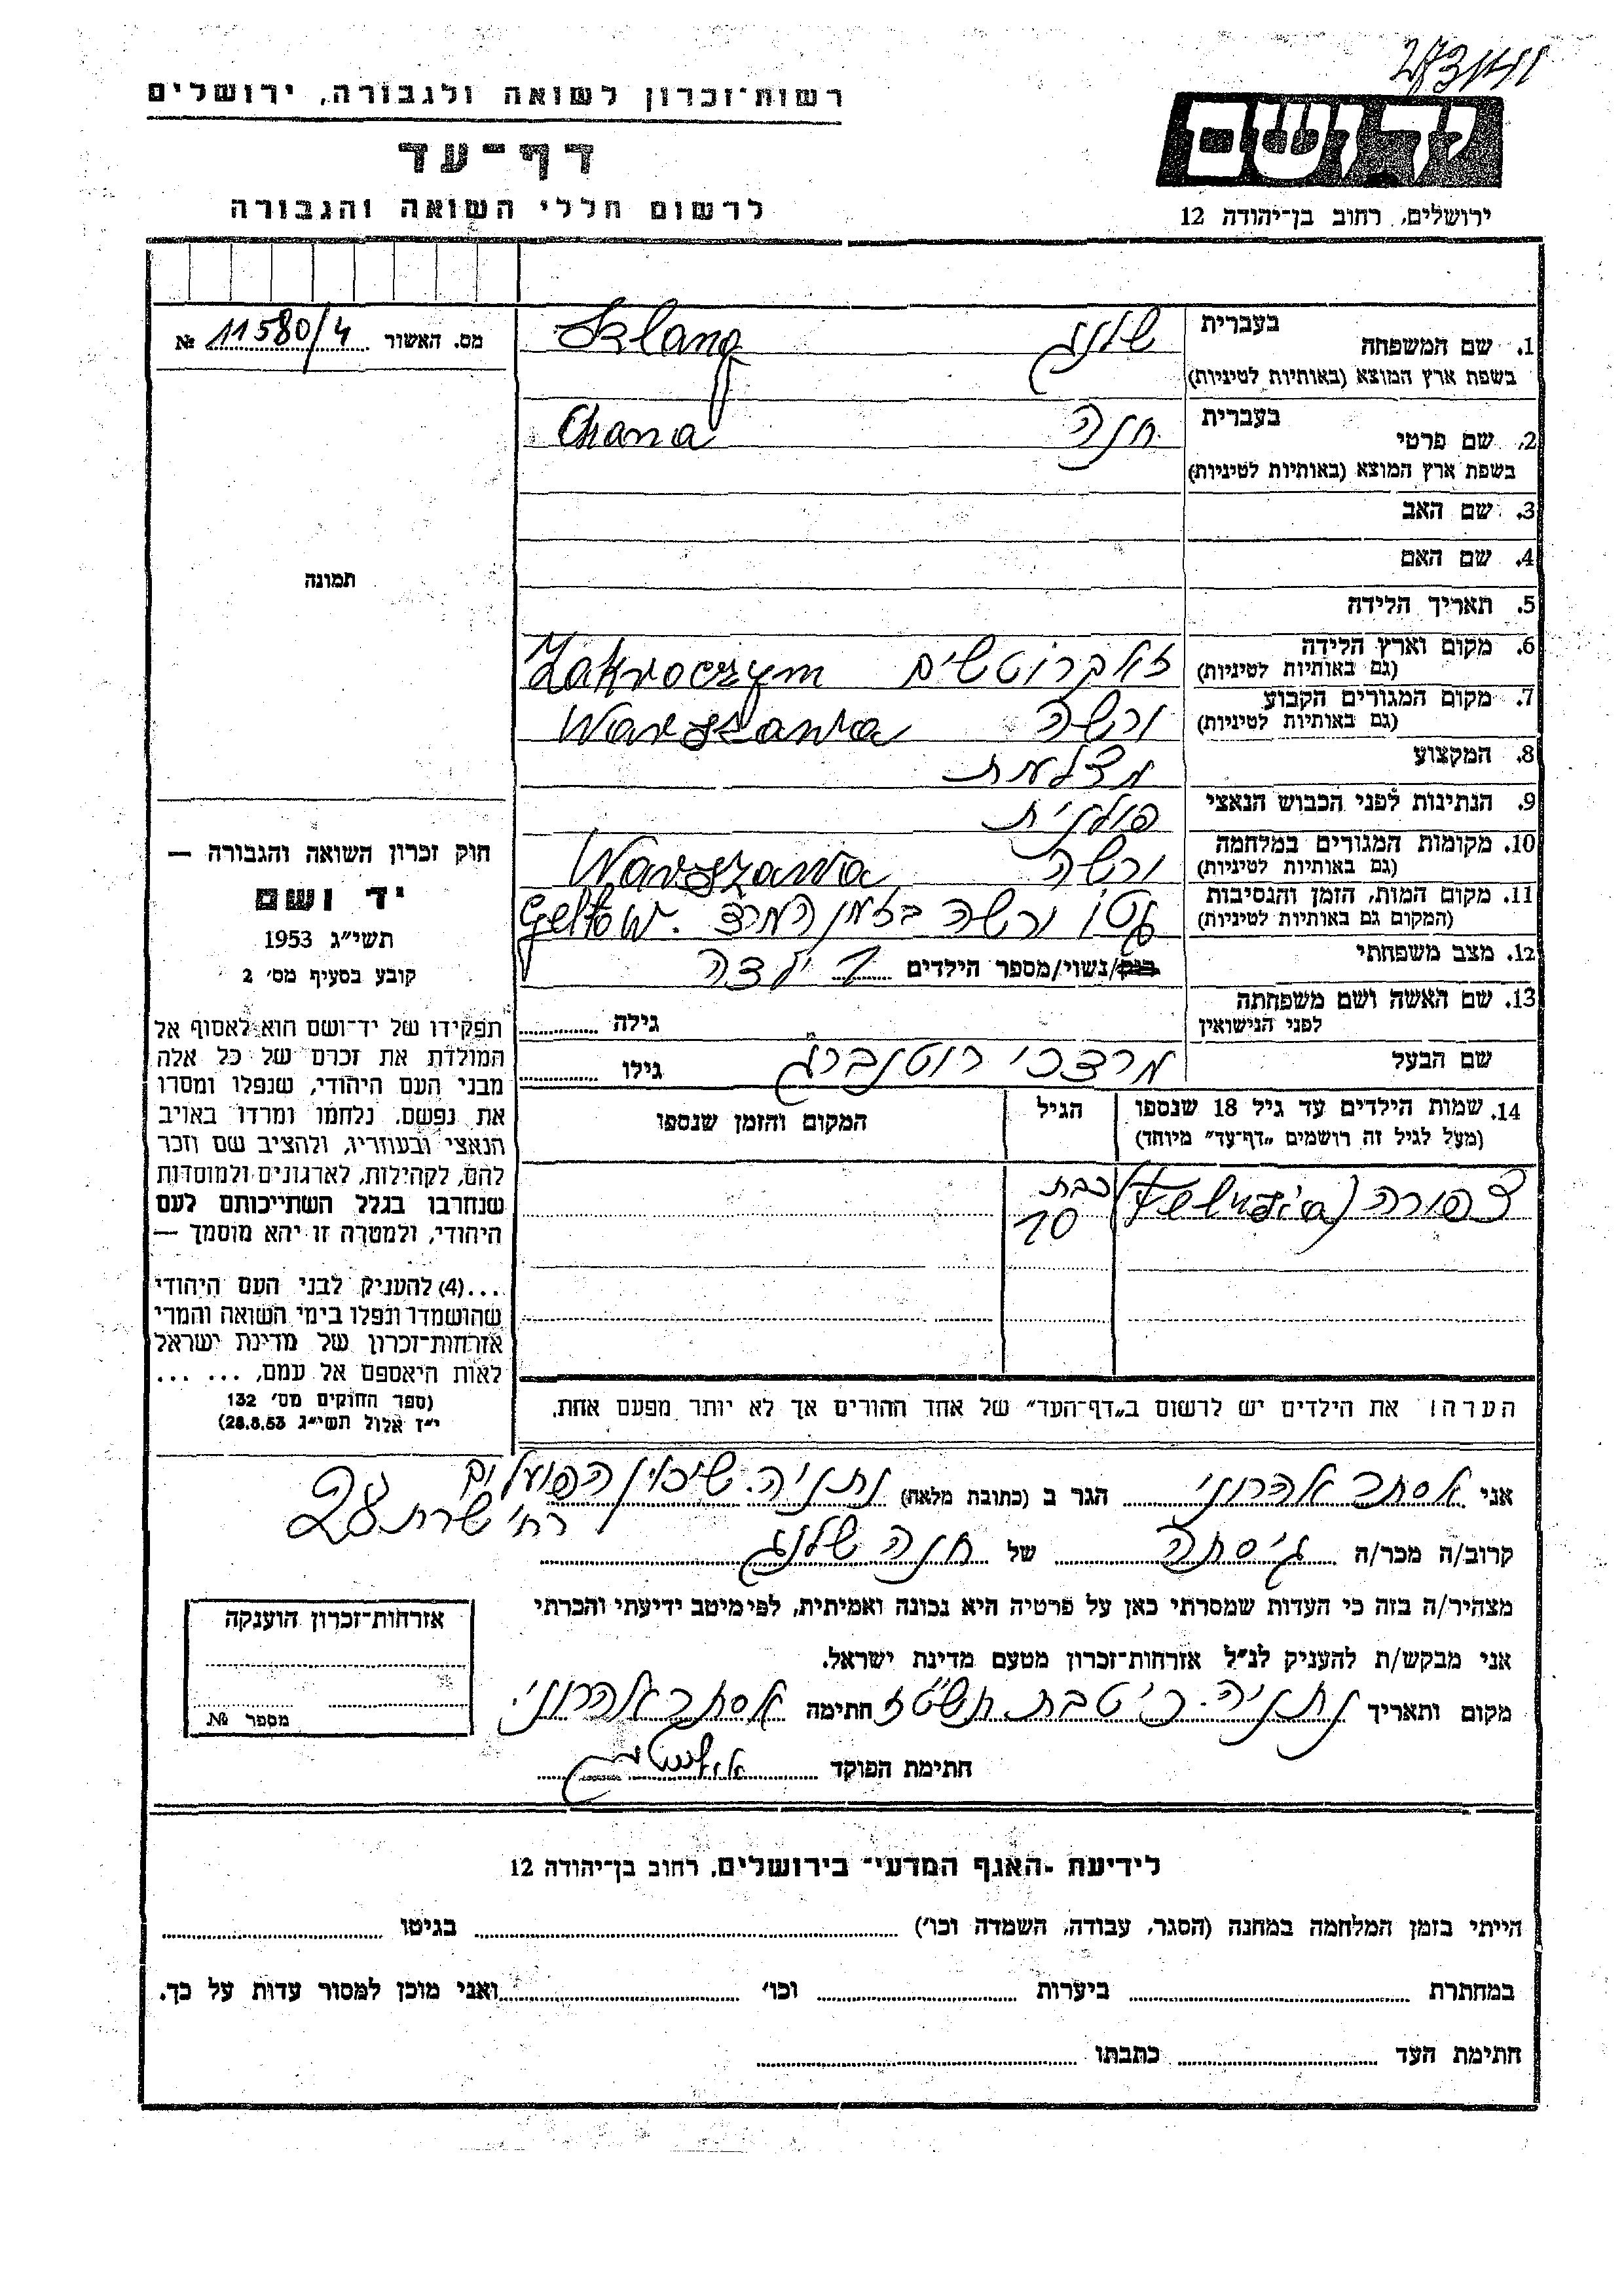 רשות־זכרון לשואה ולגבורה, ירושלים
דף־עד
לרשום חללי השואה והגבורה
יד ושם
ירושלים, רחוב בן־יהודה 12
מס. האשור 11580/4 №
1. שם המשפחה
בעברית שלנג
בשפת ארץ המוצא (באותיות לטיניות) Szlang
2. שם פרטי
בעברית חנה
בשפת ארץ המוצא (באותיות לטיניות) Chana
3. שם האב
4. שם האם
5. תאריך הלידה
6. מקום וארץ הלידה
(גם באותיות לטיניות) זאקרוטשים Zakroczym
7. מקום המגורים הקבוע
(גם באותיות לטיניות) ורשה Warszawa
8. המקצוע
9. הנתינות לפני הכבוש הנאצי פולנית
10. מקומות המגורים במלחמה
(גם באותיות לטיניות) ורשה Warszawa
11. מקום המות, הזמן והנסיבות
(המקום גם באותיות לטיניות) גטו ורשה בזמן המרד. Getto W.
12. מצב משפחתי
רוק/נשוי/מספר הילדים 1 ילדה
13. שם האשה ושם משפחתה
לפני הנישואין
גילה
שם הבעל מרדכי רוטנברג
גילו
14. שמות הילדים עד גיל 18 שנספו
(מעל לגיל זה רושמים „דף־עד” מיוחד)
הגיל
המקום והזמן שנספו
צפורה (Feluzia)
כבת
10
הערה! את הילדים יש לרשום ב„דף־העד” של אחד ההורים אך לא יותר מפעם אחת.
תמונה
חוק זכרון השואה והגבורה —
יד ושם
תשי״ג 1953
קובע בסעיף מס׳ 2
תפקידו של יד־ושם הוא לאסוף אל
המולדת את זכרם של כל אלה
מבני העם היהודי, שנפלו ומסרו
את נפשם, נלחמו ומרדו באויב
הנאצי ובעוזריו, ולהציב שם וזכר
להם, לקהילות, לארגונים ולמוסדות
שנחרבו בגלל השתייכותם לעם
היהודי, ולמטרה זו יהא מוסמך —
...(4) להעניק לבני העם היהודי
שהושמדו ונפלו בימי השואה והמרי
אזרחות־זכרון של מדינת ישראל
לאות היאספם אל עמם, ... ...
(ספר החוקים מס׳ 132
י״ז אלול תשי״ג 28.8.53)
אני אסתר אהרוני הגר ב (כתובת מלאה) נתניה. שיכון הפועלים
רח׳ שרת 28
קרוב/ה מכר/ה גיסתה של חנה שלנג
מצהיר/ה בזה כי העדות שמסרתי כאן על פרטיה היא נכונה ואמיתית, לפי מיטב ידיעתי והכרתי
אני מבקש/ת להעניק לנ״ל אזרחות־זכרון מטעם מדינת ישראל.
מקום ותאריך נתניה. כ׳ טבת תשט״ז חתימה אסתר אהרוני.
חתימת הפוקד
אזרחות־זכרון הוענקה
מספר №
לידיעת ־האגף המדעי־ בירושלים, רחוב בן־יהודה 12
הייתי בזמן המלחמה במחנה (הסגר, עבודה, השמדה וכו׳) בגיטו
במחתרת ביערות וכו׳ ואני מוכן למסור עדות על כך.
חתימת העד כתבתו